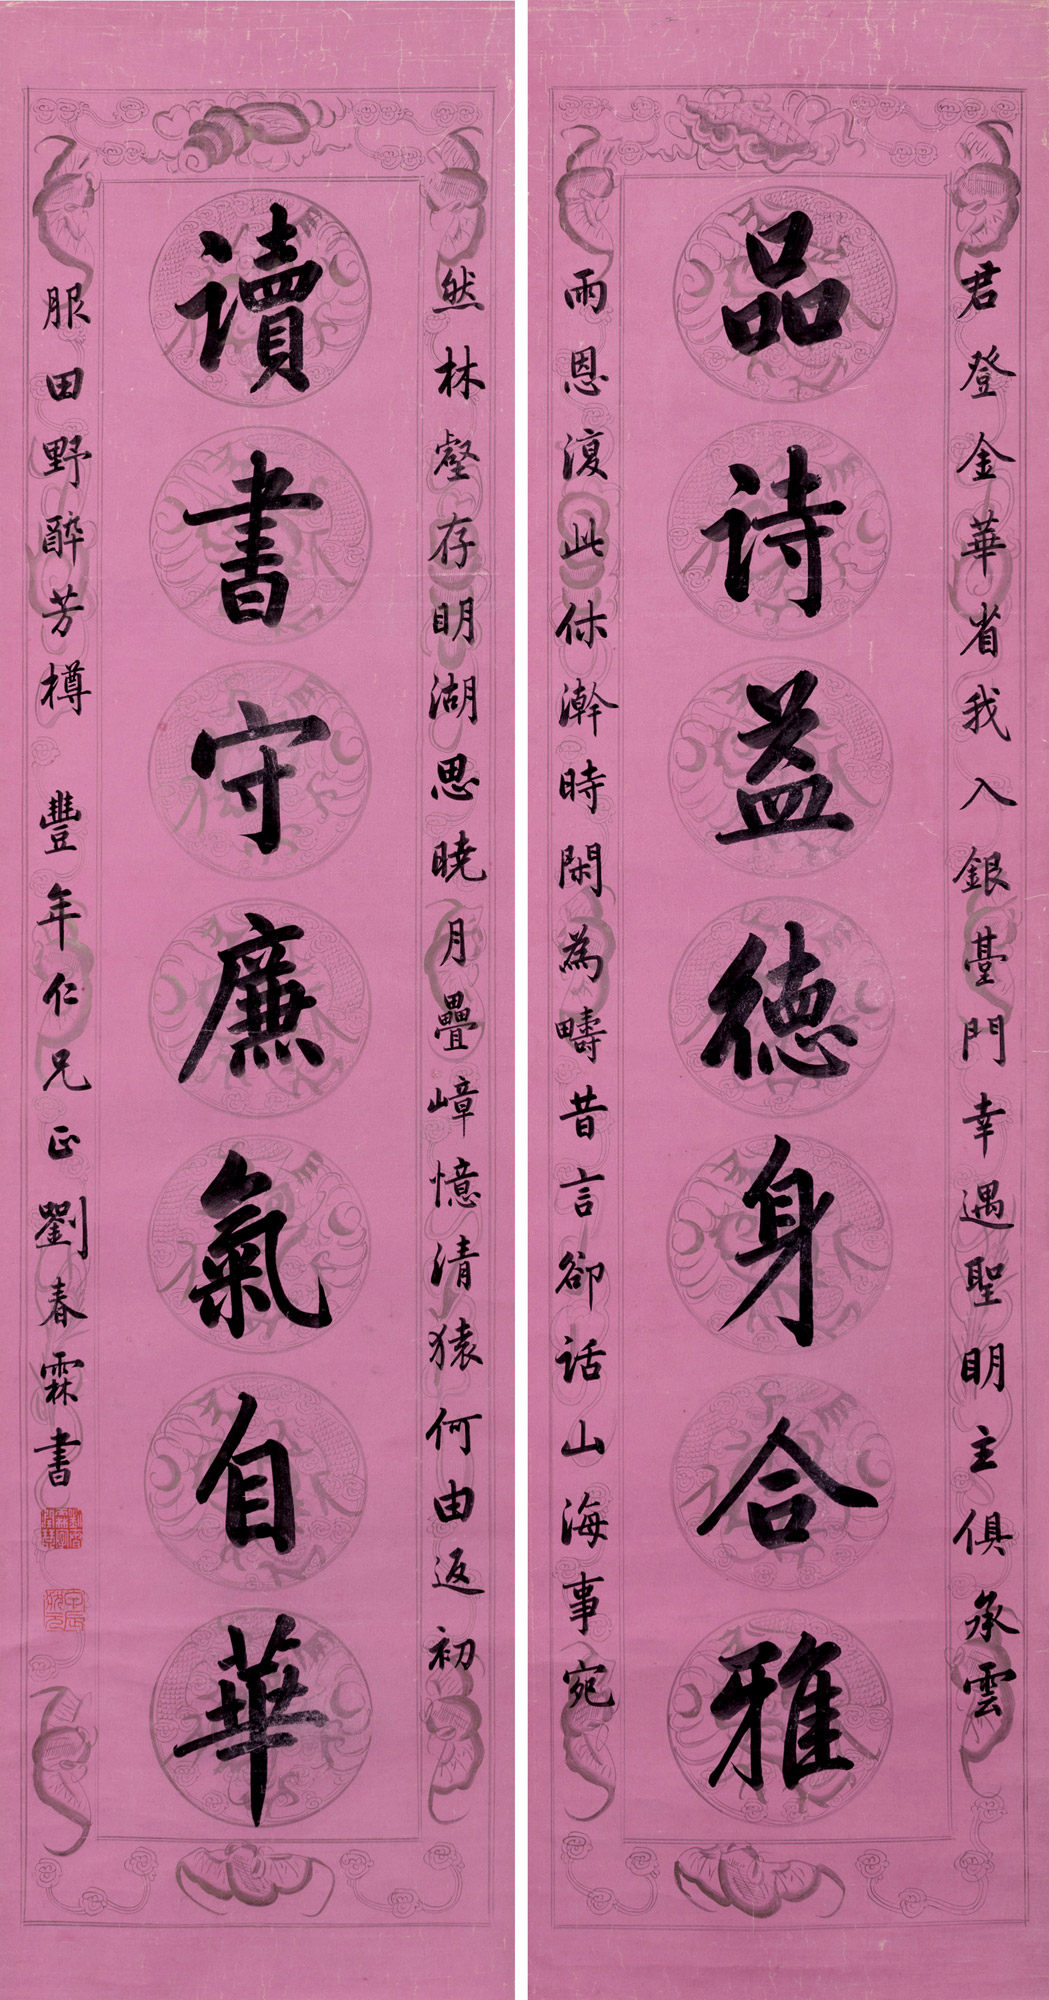 君登金華省我入銀臺門幸遇聖明主俱承雲
品詩益德身合雅
雨恩復此休瀚時閑為疇昔言卻話山海事宛
然林壑存明湖思曉月疊嶂憶清猿何由返初
讀書守廉氣自華
服田野醉芳樽 豐年仁兄正 劉春霖書